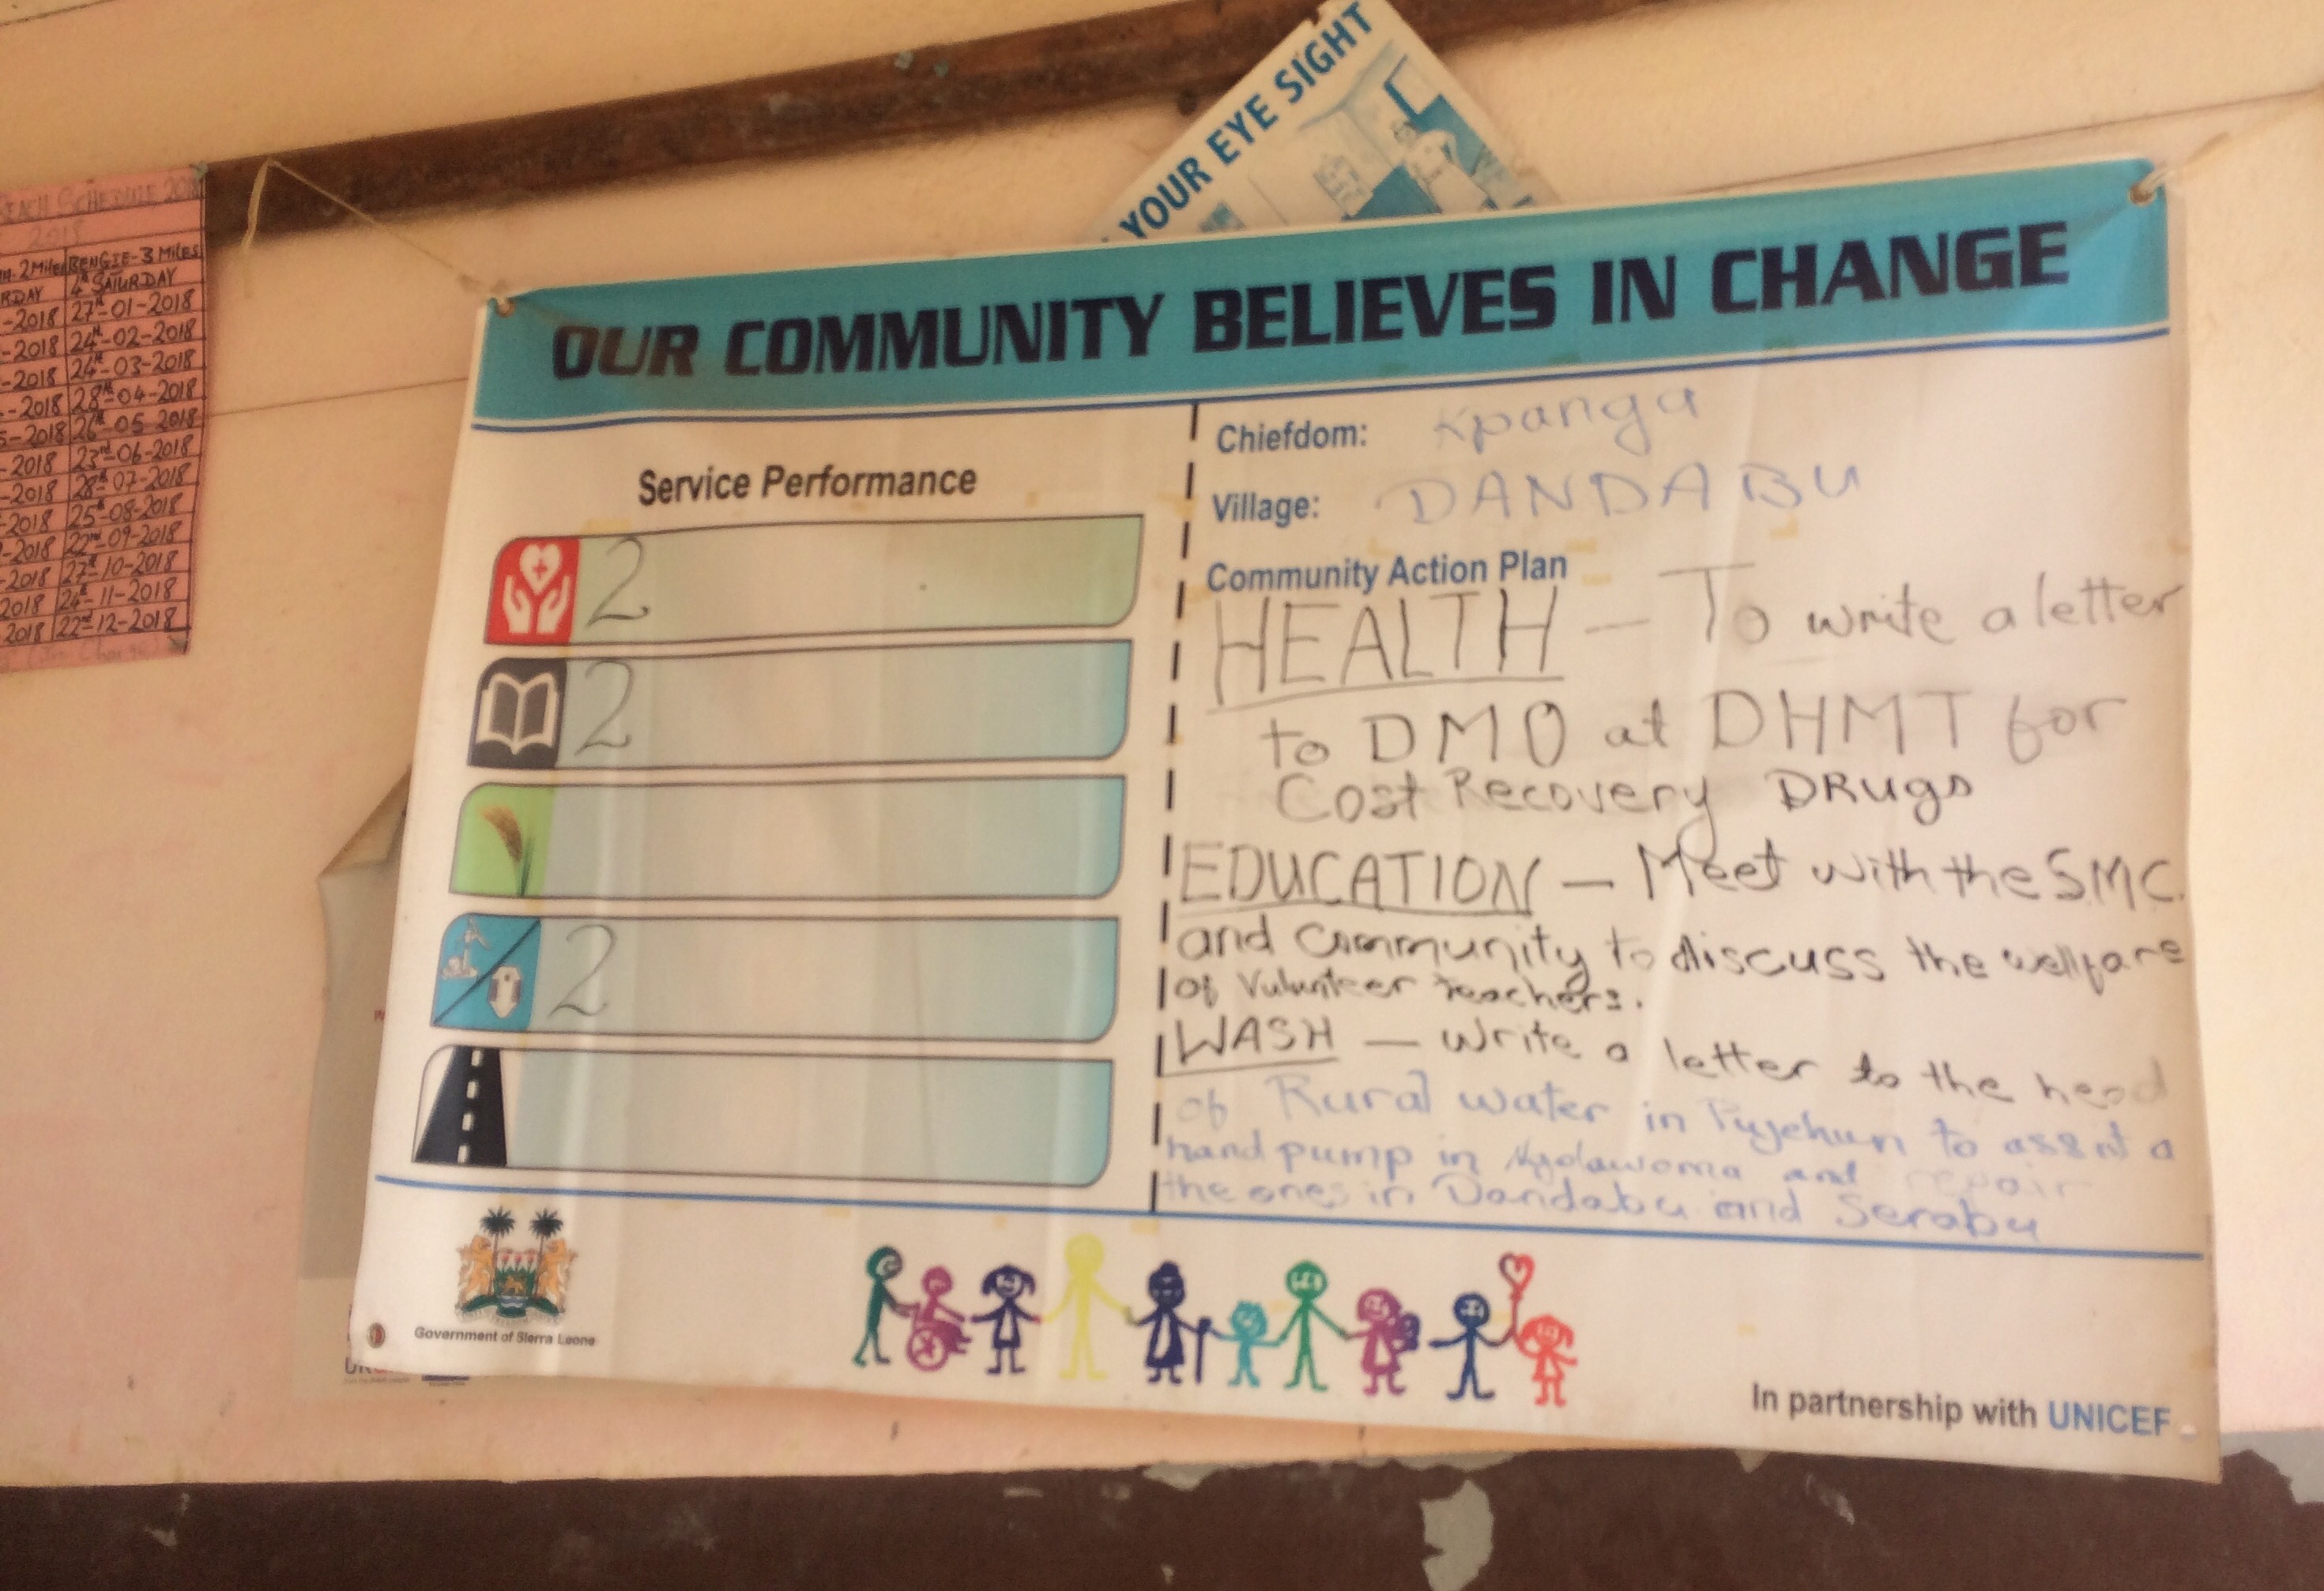 SCHEDULE 2018
2018
2Miles BENGIE-3 MILES
RDAY 4th SATURDAY
-2018 27th-01-2018
-2018 24th-02-2018
-2018 24th-03-2018
-2018 28th-04-2018
-2018 26th-05-2018
-2018 23rd-06-2018
-2018 28th-07-2018
-2018 25th-08-2018
-2018 22nd-09-2018
-2018 27th-10-2018
2018 24th-11-2018
2018 22nd-12-2018
YOUR EYE SIGHT
OUR COMMUNITY BELIEVES IN CHANGE
Service Performance
2
2
2
Chiefdom: Kpanga
Village: DANDABU
Community Action Plan
HEALTH — To write a letter
to DMO at DHMT for
Cost Recovery DRugs
EDUCATION — Meet with the SMC.
and community to discuss the wellfare
of Volunteer teachers.
WASH — write a letter to the head
of Rural water in Pujehun to a
hand pump in and repair
the ones in Dandabu and Serabu
Government of Sierra Leone
In partnership with UNICEF